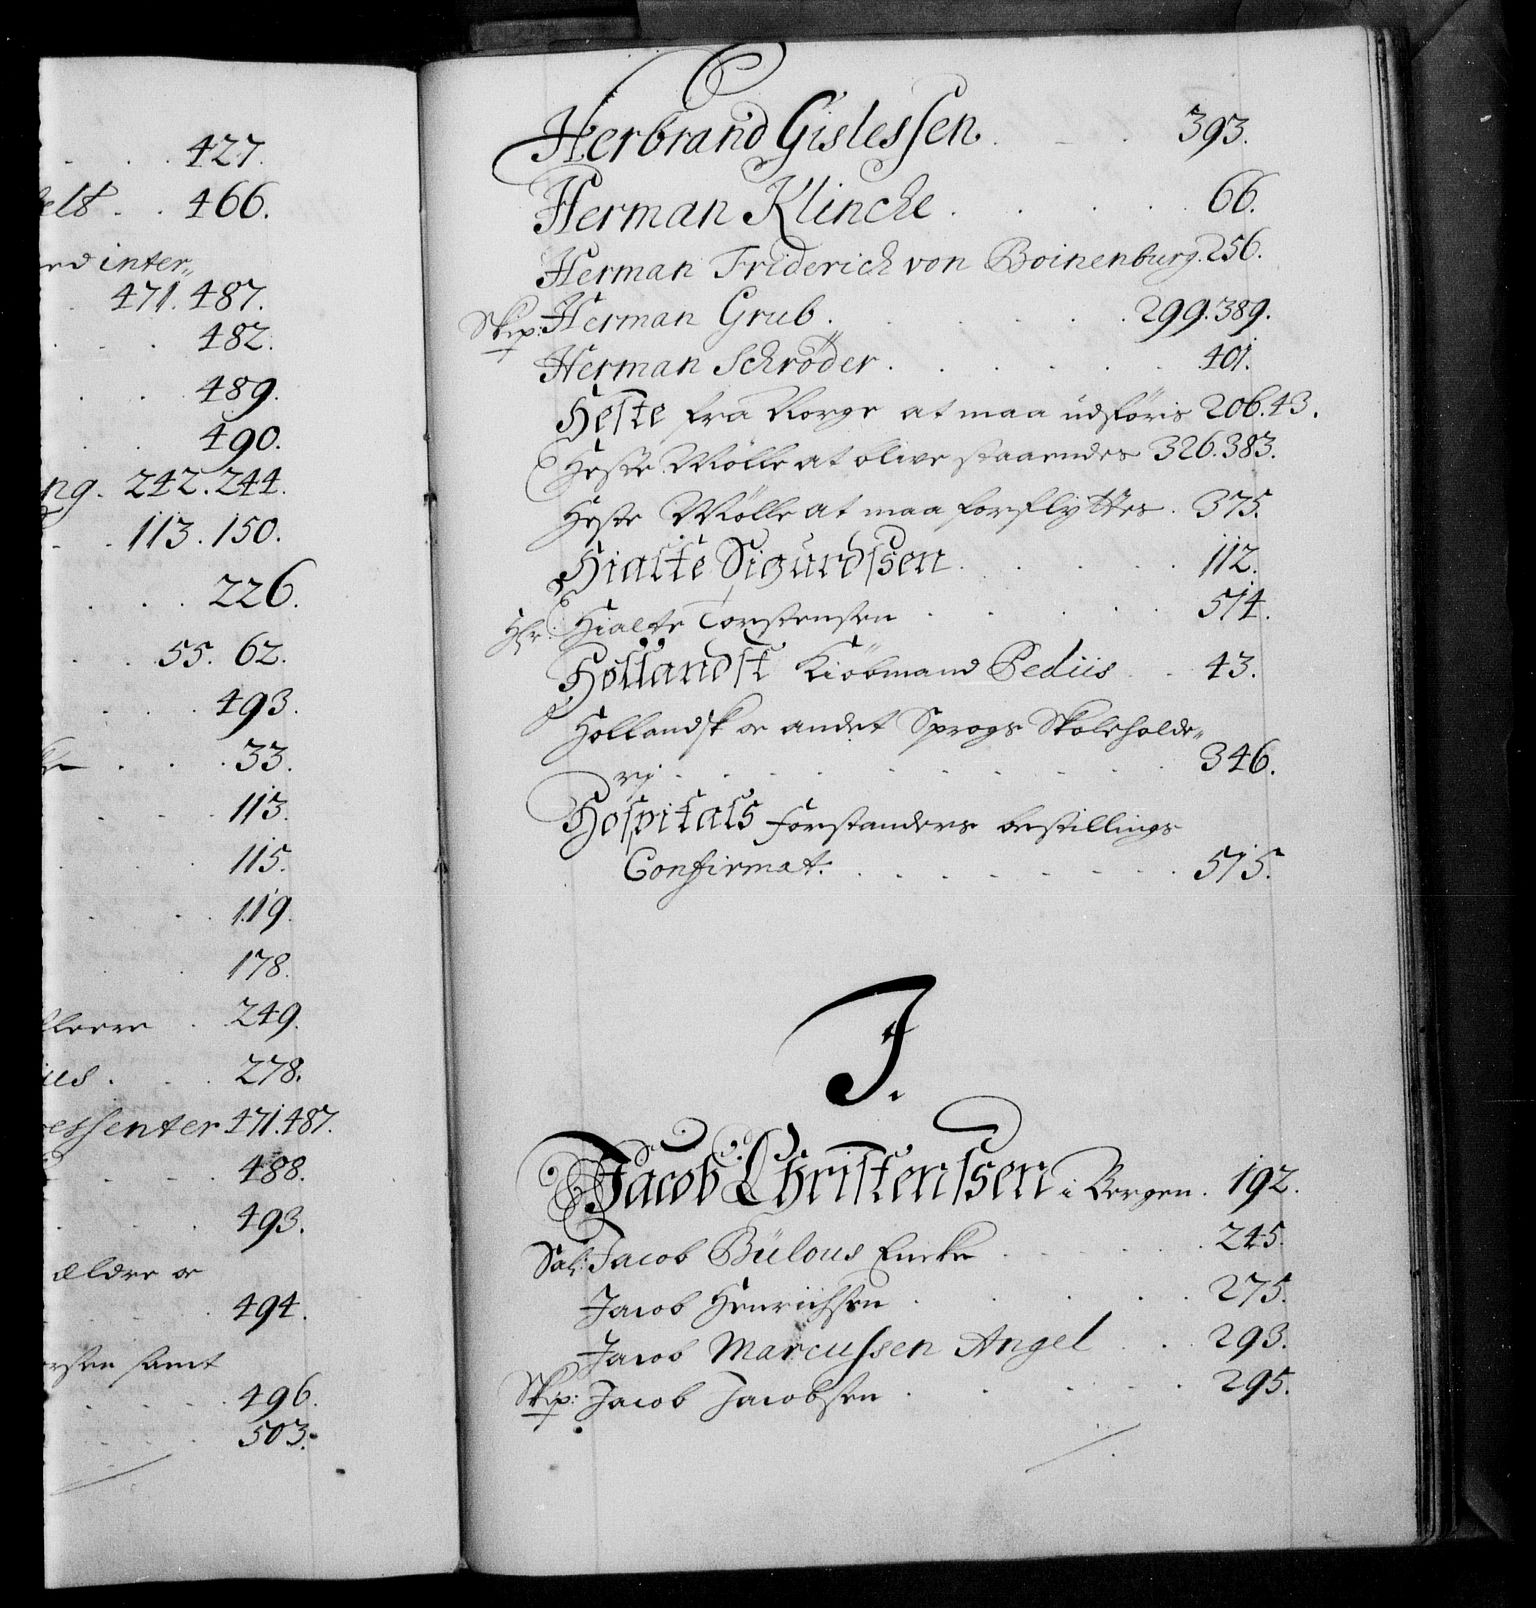 427.
466.
inter„
471. 487.
482.
489.
490.
ng. 242. 244.
113. 150.
226.
55. 62.
493.
33.
113.
115.
119.
178.
249.
278.
471. 487.
488.
493.
ældre oc
494.
samt
496.
503.
Herbrand Gislessen. 393.
Herman Klincke. 66.
Herman Friderich von Boinenburg. 256.
Skip: Herman Grub. 299. 389.
Herman Schrøder. 401.
Heste fra Norge at maa udføris 206. 43.
Heste Mølle at blive staaendes 326. 383.
Heste Mølle at maa forflyttes. 375.
Hialte Sigurdssen. 112.
Hr: Hialte Torstensen 514.
Hollandsk Kiøbmand Pediis 43.
Hollandsk oc andet Sprogs Skoleholde„
rj. 346.
Hospitals Forstanders bestillings
Confirmat. 515.
J.
Jacob Christenssen i Bergen. 192.
Sal: Jacob Bülous Encke 245.
Jacob Henrichsen. 275.
Jacob Marcussen Angel 293.
Skip: Jacob Jacobsen 295.